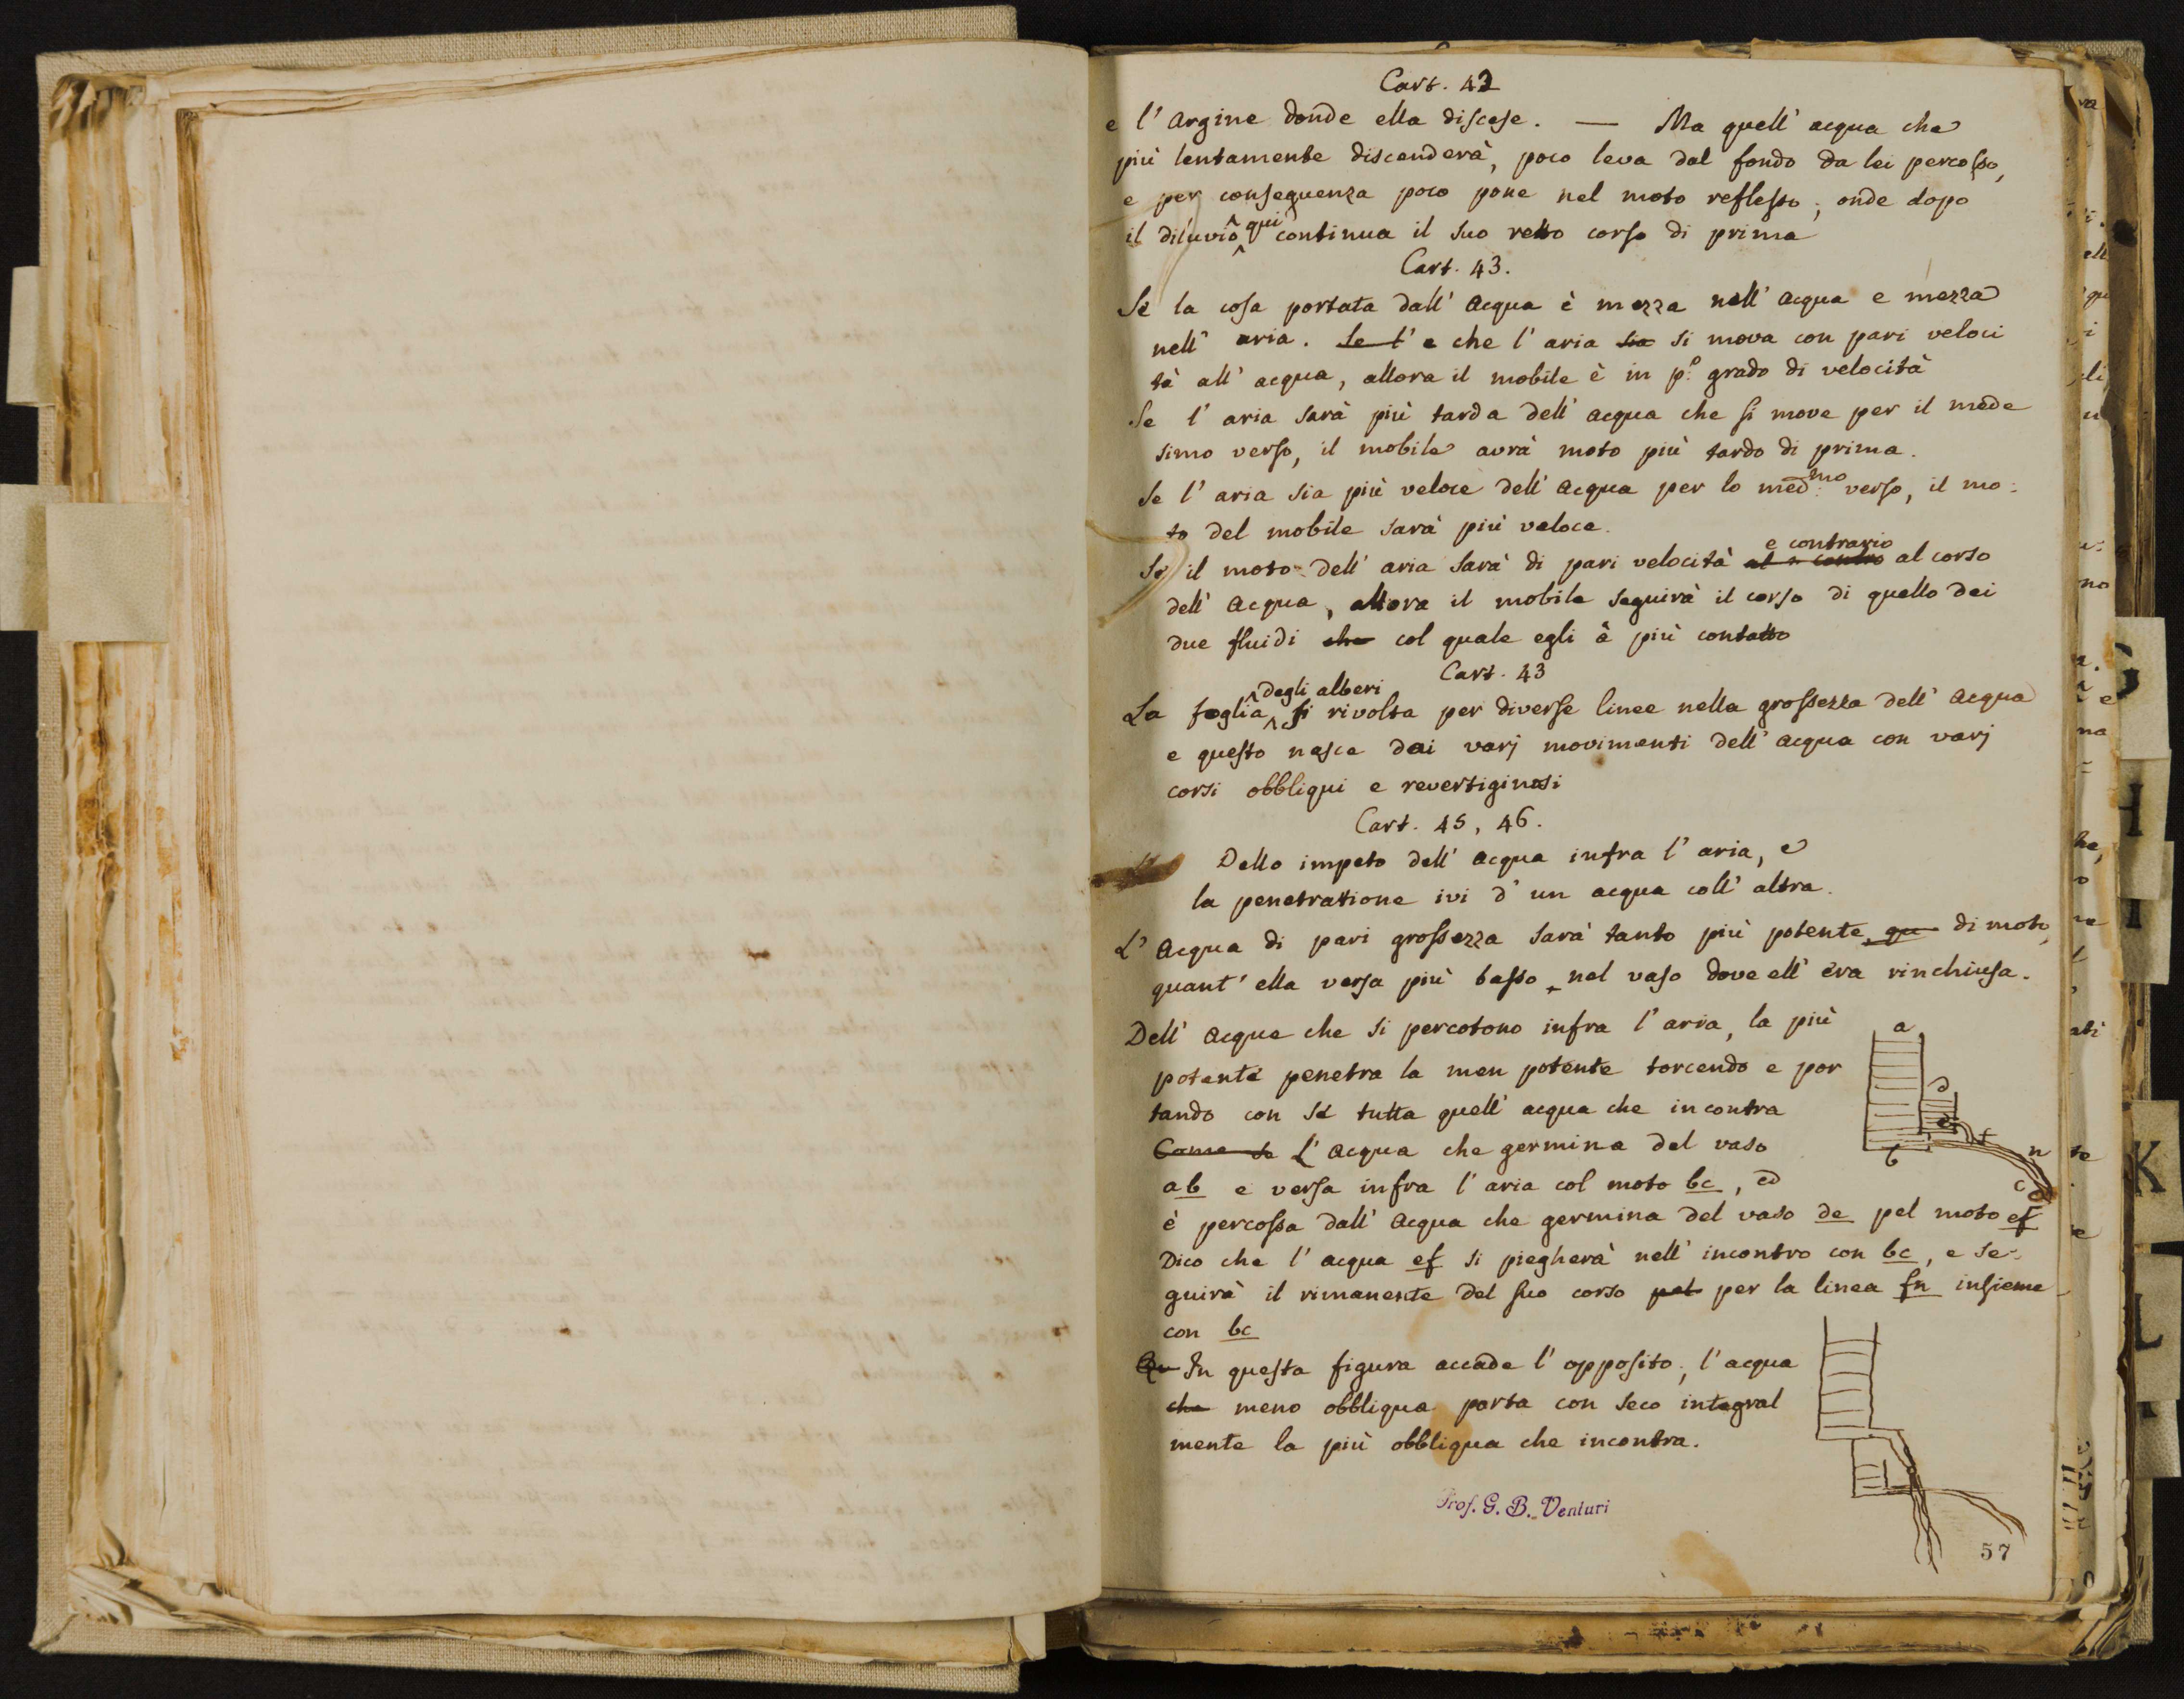 Cart. 42
e l' argine donde ella discese. — Ma quell' acqua che
più lentamente discenderà, poco leva dal fondo da lei percosso,
e per conseguenza poco pone nel moto reflesso; onde dopo
il diluvio qui continua il suo retto corso di prima
Cart. 43.
Se la cosa portata dall' acqua è mezza nell' acqua e mezza
nell' aria. Se l' e che l' aria sia si mova con pari veloci
tà all' acqua, allora il mobile è in p.º grado di velocità
Se l' aria sarà più tarda dell' acqua che si move per il mede
simo verso, il mobile avrà moto più tardo di prima.
Se l' aria sia più veloce dell' acqua per lo med.mo verso, il mo:
to del mobile sarà più veloce.
e contrario
Se il moto dell' aria sarà di pari velocità al corso
dell' acqua, allora il mobile seguirà il corso di quello dei
due fluidi che col quale egli à più contatto
Cart. 43
degli alberi
La foglia si rivolta per diverse linee nella grossezza dell' acqua
e questo nasce dai varj movimenti dell' acqua con varj
corsi obbliqui e revertiginosi
Cart. 45, 46.
Dello impeto dell' acqua infra l' aria, e
la penetratione ivi d' un acqua coll' altra.
L' acqua di pari grossezza sarà tanto più potente qu di moto,
quant' ella versa più basso nel vaso dove ell' era rinchiusa.
Dell' acque che si percotono infra l' aria, la più
potente penetra la men potente torcendo e por
tando con sé tutta quell' acqua che incontra
Come se L' acqua che germina del vaso
ab e versa infra l' aria col moto bc, ed
è percossa dall' acqua che germina del vaso de pel moto ef
Dico che l' acqua ef si piegherà nell' incontro con bc, e se-
guirà il rimanente del suo corso pel per la linea fn insieme
con bc
Qu In questa figura accade l' opposito; l' acqua
che meno obbliqua porta con seco integral
mente la più obbliqua che incontra.
a
d
e
f
b
n
c
Prof. G. B. Venturi
57
G
H
I
K
L